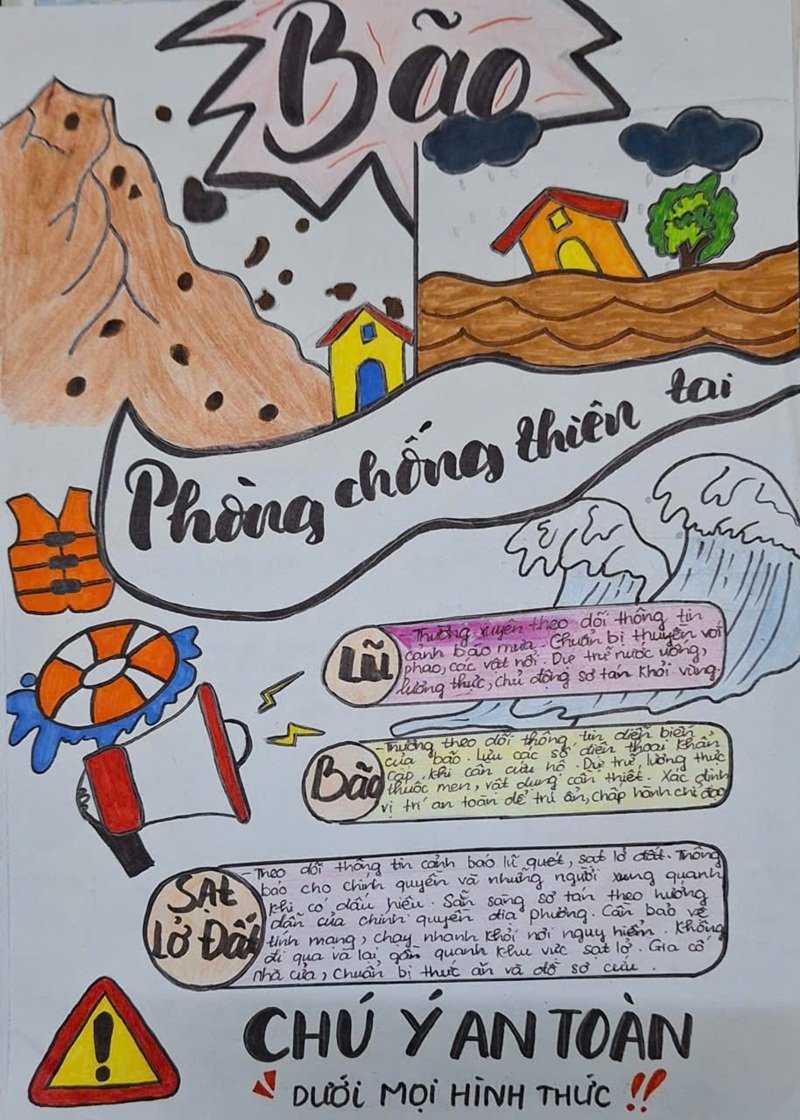 Bão
Phòng chống thiên tai
Lũ
- Thường xuyên theo dõi thông tin
cảnh báo mưa. Chuẩn bị thuyền với
phao, các vật nổi. Dự trữ nước uống,
lương thực, chủ động sơ tán khỏi vùng.
Bão
- Thường theo dõi thông tin diễn biến
của bão. Lưu các số điện thoại khẩn
cấp, khi cần cứu hộ. Dự trữ lương thực
thuốc men, vật dụng cần thiết. Xác định
vị trí an toàn để trú ẩn, chấp hành chỉ đạo
SẠT
LỞ ĐẤT
- Theo dõi thông tin cảnh báo lũ quét, sạt lở đất. Thông
báo cho chính quyền và những người xung quanh
khi có dấu hiệu. Sẵn sàng sơ tán theo hướng
dẫn của chính quyền địa phương. Cần bảo vệ
tính mạng, chạy nhanh khỏi nơi nguy hiểm. Không
đi qua và lại, gần quanh khu vực sạt lở. Gia cố
nhà cửa, chuẩn bị thức ăn và đồ sơ cứu.
CHÚ Ý AN TOÀN
DƯỚI MỌI HÌNH THỨC !!